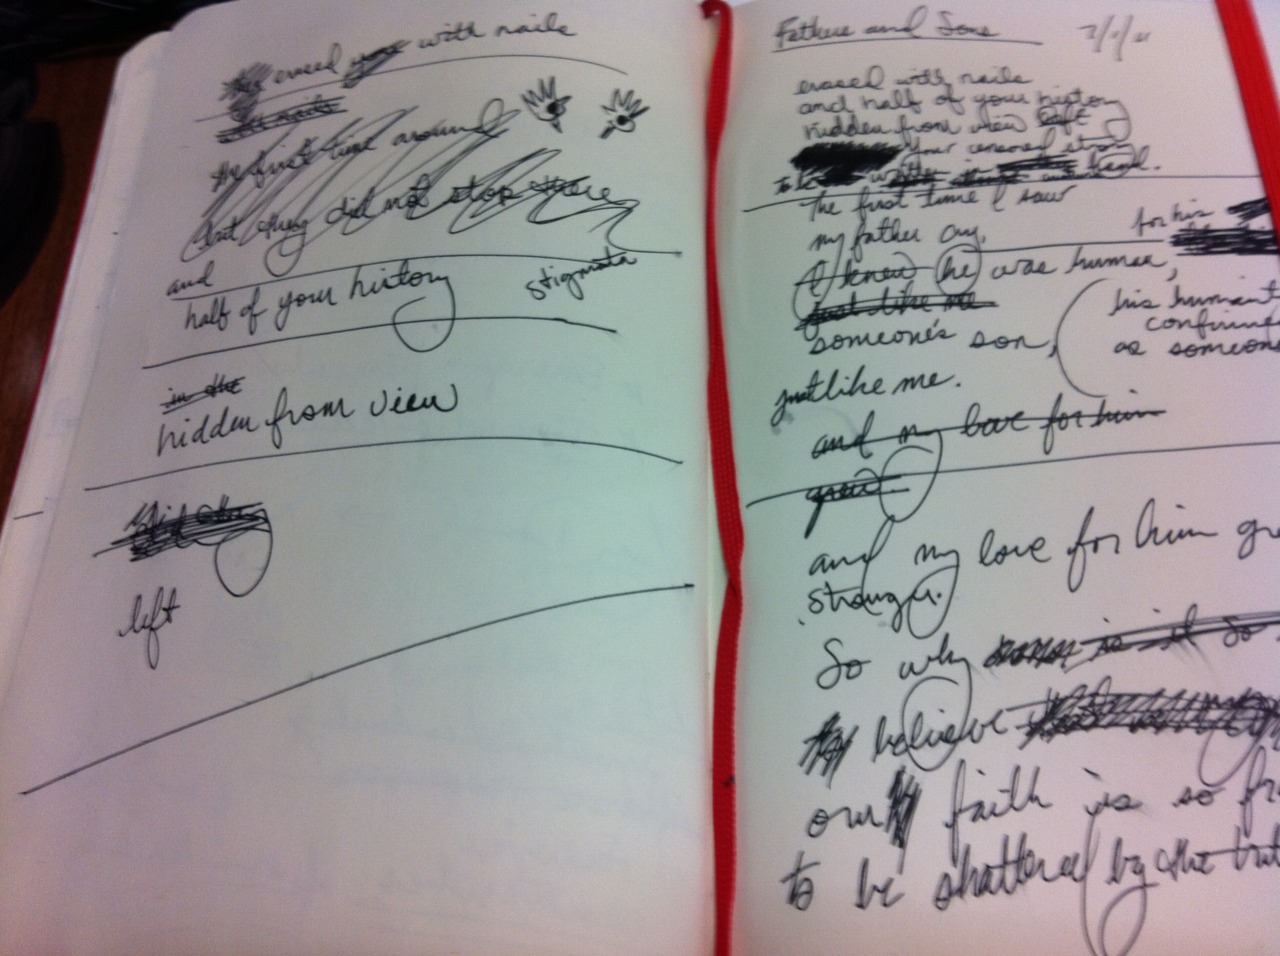 erased with nails
the first time around
but they did not stop there
and
half of your history
stigmata
in the
hidden from view
left
Fathers and Sons
erased with nails
and half of your history
hidden from view left
your censored story
hand.
The first time I saw
my father cry,
for his
I knew he was human,
just like me
someone's son,
his humanit
confirme
as someone
just like me.
and my love for him
grew.
and my love for him gr
stronger.
So why is it so
believe
our faith is so fr
to be shattered by the trut